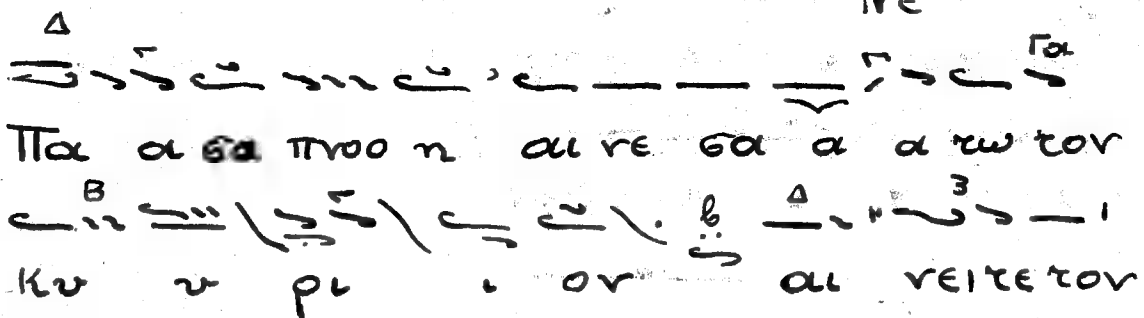 Πα α σα πνοο η αι νε σα α α τω τον
Κυ υ ρι ι ον αι νειτε τον